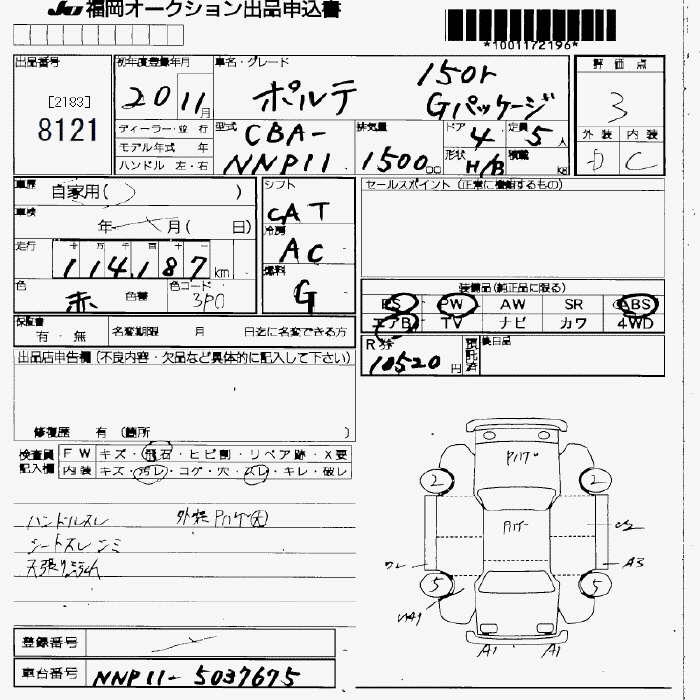 JU 福岡オークション出品申込書
*1001172196*
出品番号
[2183]
8121
初年度登録年月
20 11月
ディーラー・並 行
モデル年式 年
ハンドル 左・右
車名・グレード
ポルテ 150r
Gパッケージ
型式
CBA-
NNP11
排気量
1500cc
ドア 4
定員 5人
形状 H/B
積載 kg
評価点
3
外装 内装
D C
車歴
自家用( )
車検
年 月( 日)
走行
十 万 千 百 十 一
114,187km
色
赤 色番
色コード
3P0
シフト
CAT
冷房
AC
燃料
G
セールスポイント (正常に機能するもの)
装備品(純正品に限る)
PS PW AW SR ABS
エアB TV ナビ カワ 4WD
保証書
有 ・ 無
名変期限 月 日迄に名変できる方
R券
10520円
預託済
後日品
出品店申告欄 (不良内容・欠品など具体的に記入して下さい)
修復歴 有 (箇所 )
検査員
記入欄
FW キズ・飛石・ヒビ割・リペア跡・X要
内装 キズ・汚レ・コゲ・穴・スレ・キレ・破レ
ハンドルスレ
シートスレ シミ
天張り汚れ
PハゲP
Pハゲ
2 2
5 5
ワレ
A3
A1 A1
登録番号
車台番号
NNP11-5037675